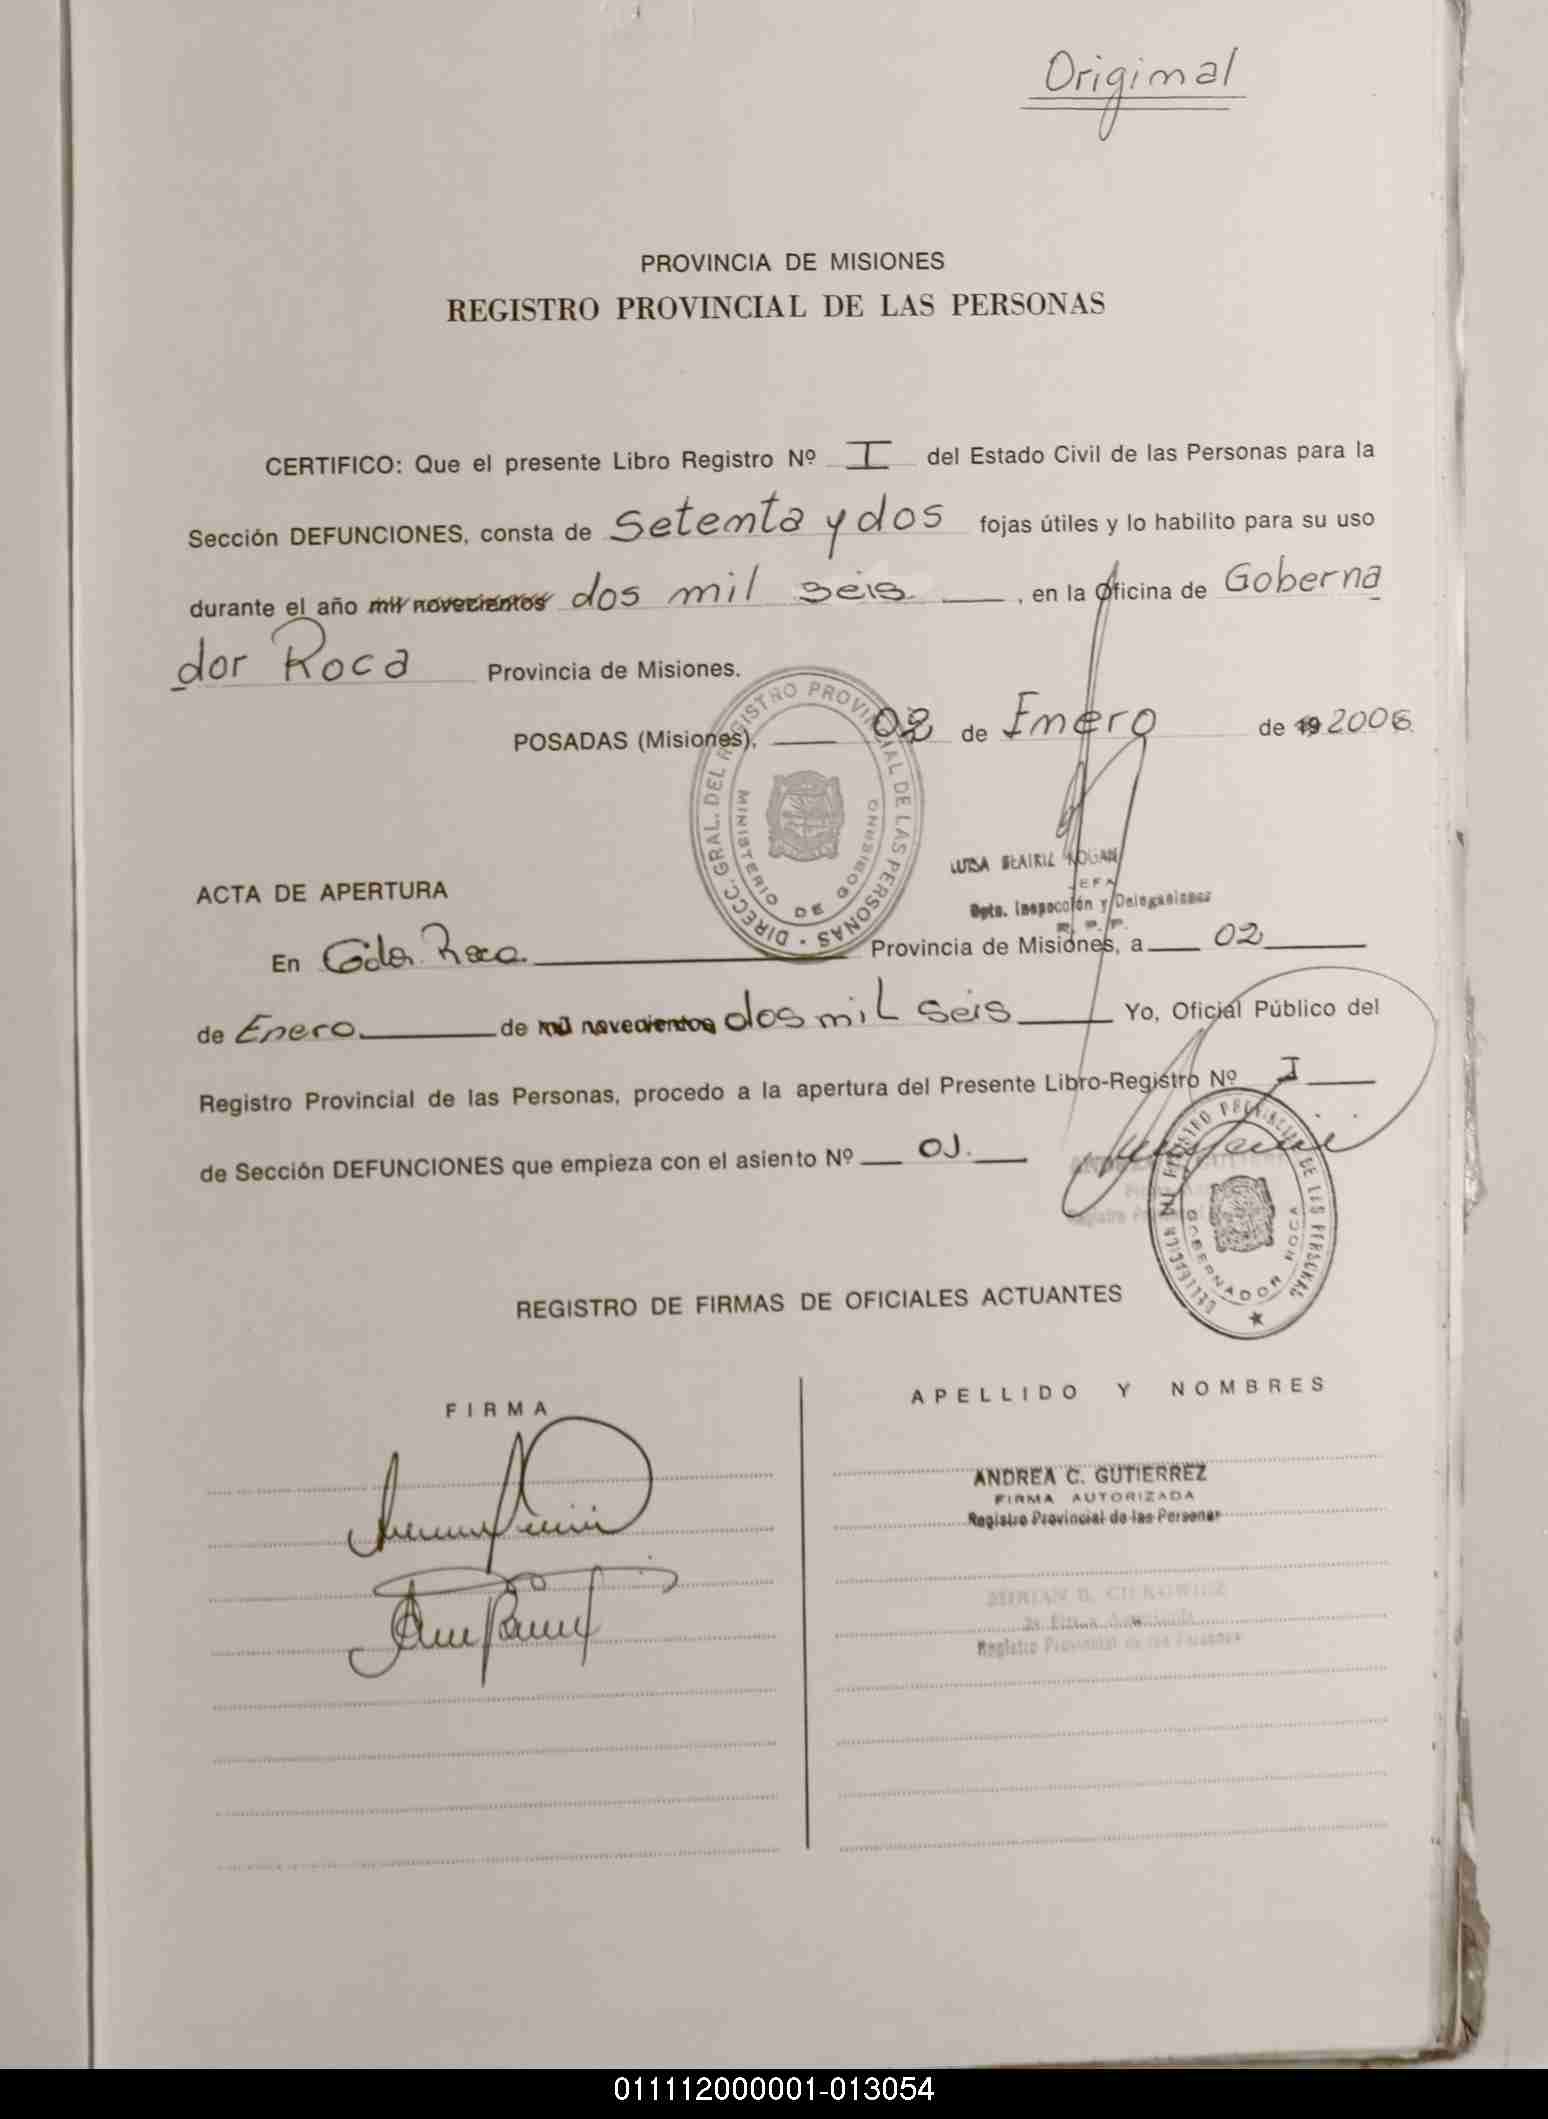 Original
PROVINCIA DE MISIONES
REGISTRO PROVINCIAL DE LAS PERSONAS
CERTIFICO: Que el presente Libro Registro Nº I del Estado Civil de las Personas para la
Sección DEFUNCIONES, consta de Setenta y dos fojas útiles y lo habilito para su uso
durante el año mil novecientos dos mil seis , en la Oficina de Goberna
dor Roca Provincia de Misiones.
POSADAS (Misiones), 02 de Enero de 19 2006
DIRECC. GRAL. DEL REGISTRO PROVINCIAL DE LAS PERSONAS
MINISTERIO DE GOBIERNO
LUISA BEATRIZ
JEFA
Dpto. Inspección y Delegaciones
R. P. P.
ACTA DE APERTURA
En Gdor. Roca Provincia de Misiones, a 02
de Enero de mil novecientos dos mil seis Yo, Oficial Público del
Registro Provincial de las Personas, procedo a la apertura del Presente Libro-Registro Nº I
de Sección DEFUNCIONES que empieza con el asiento Nº 01.
DELEGACION DEL REGISTRO PROVINCIAL DE LAS PERSONAS
GOBERNADOR ROCA
REGISTRO DE FIRMAS DE OFICIALES ACTUANTES
FIRMA
APELLIDO Y NOMBRES
ANDREA C. GUTIERREZ
FIRMA AUTORIZADA
Registro Provincial de las Personas
MIRIAN B.
Registro Provincial de las Personas
011112000001-013054